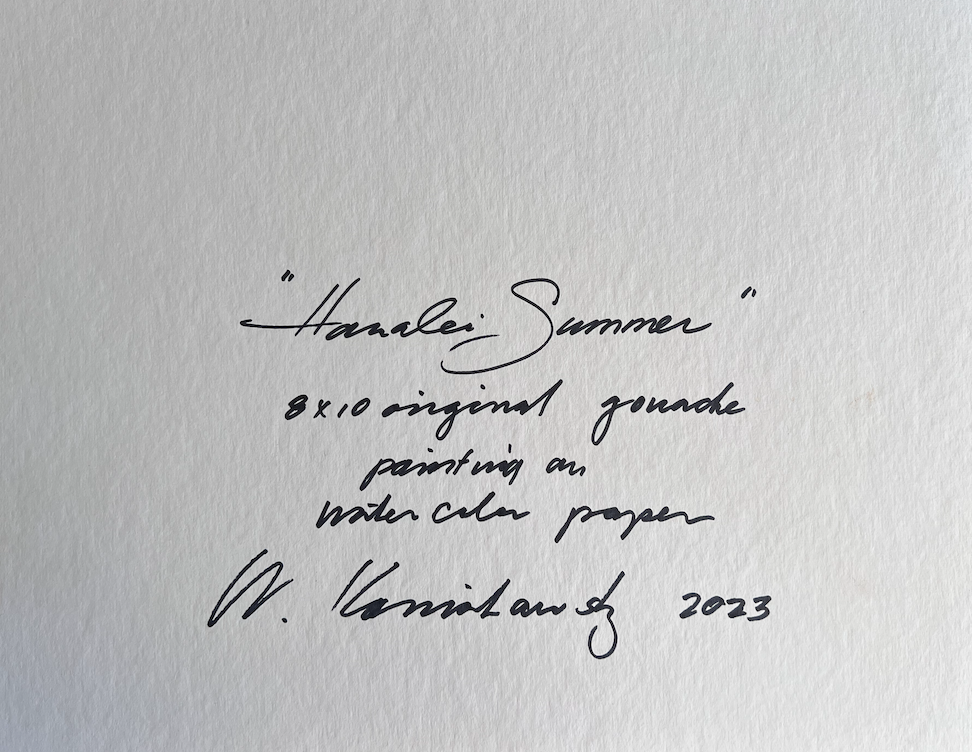 "Hanalei Summer"
8x10 original gouache
painting on
watercolor paper
W. 2023